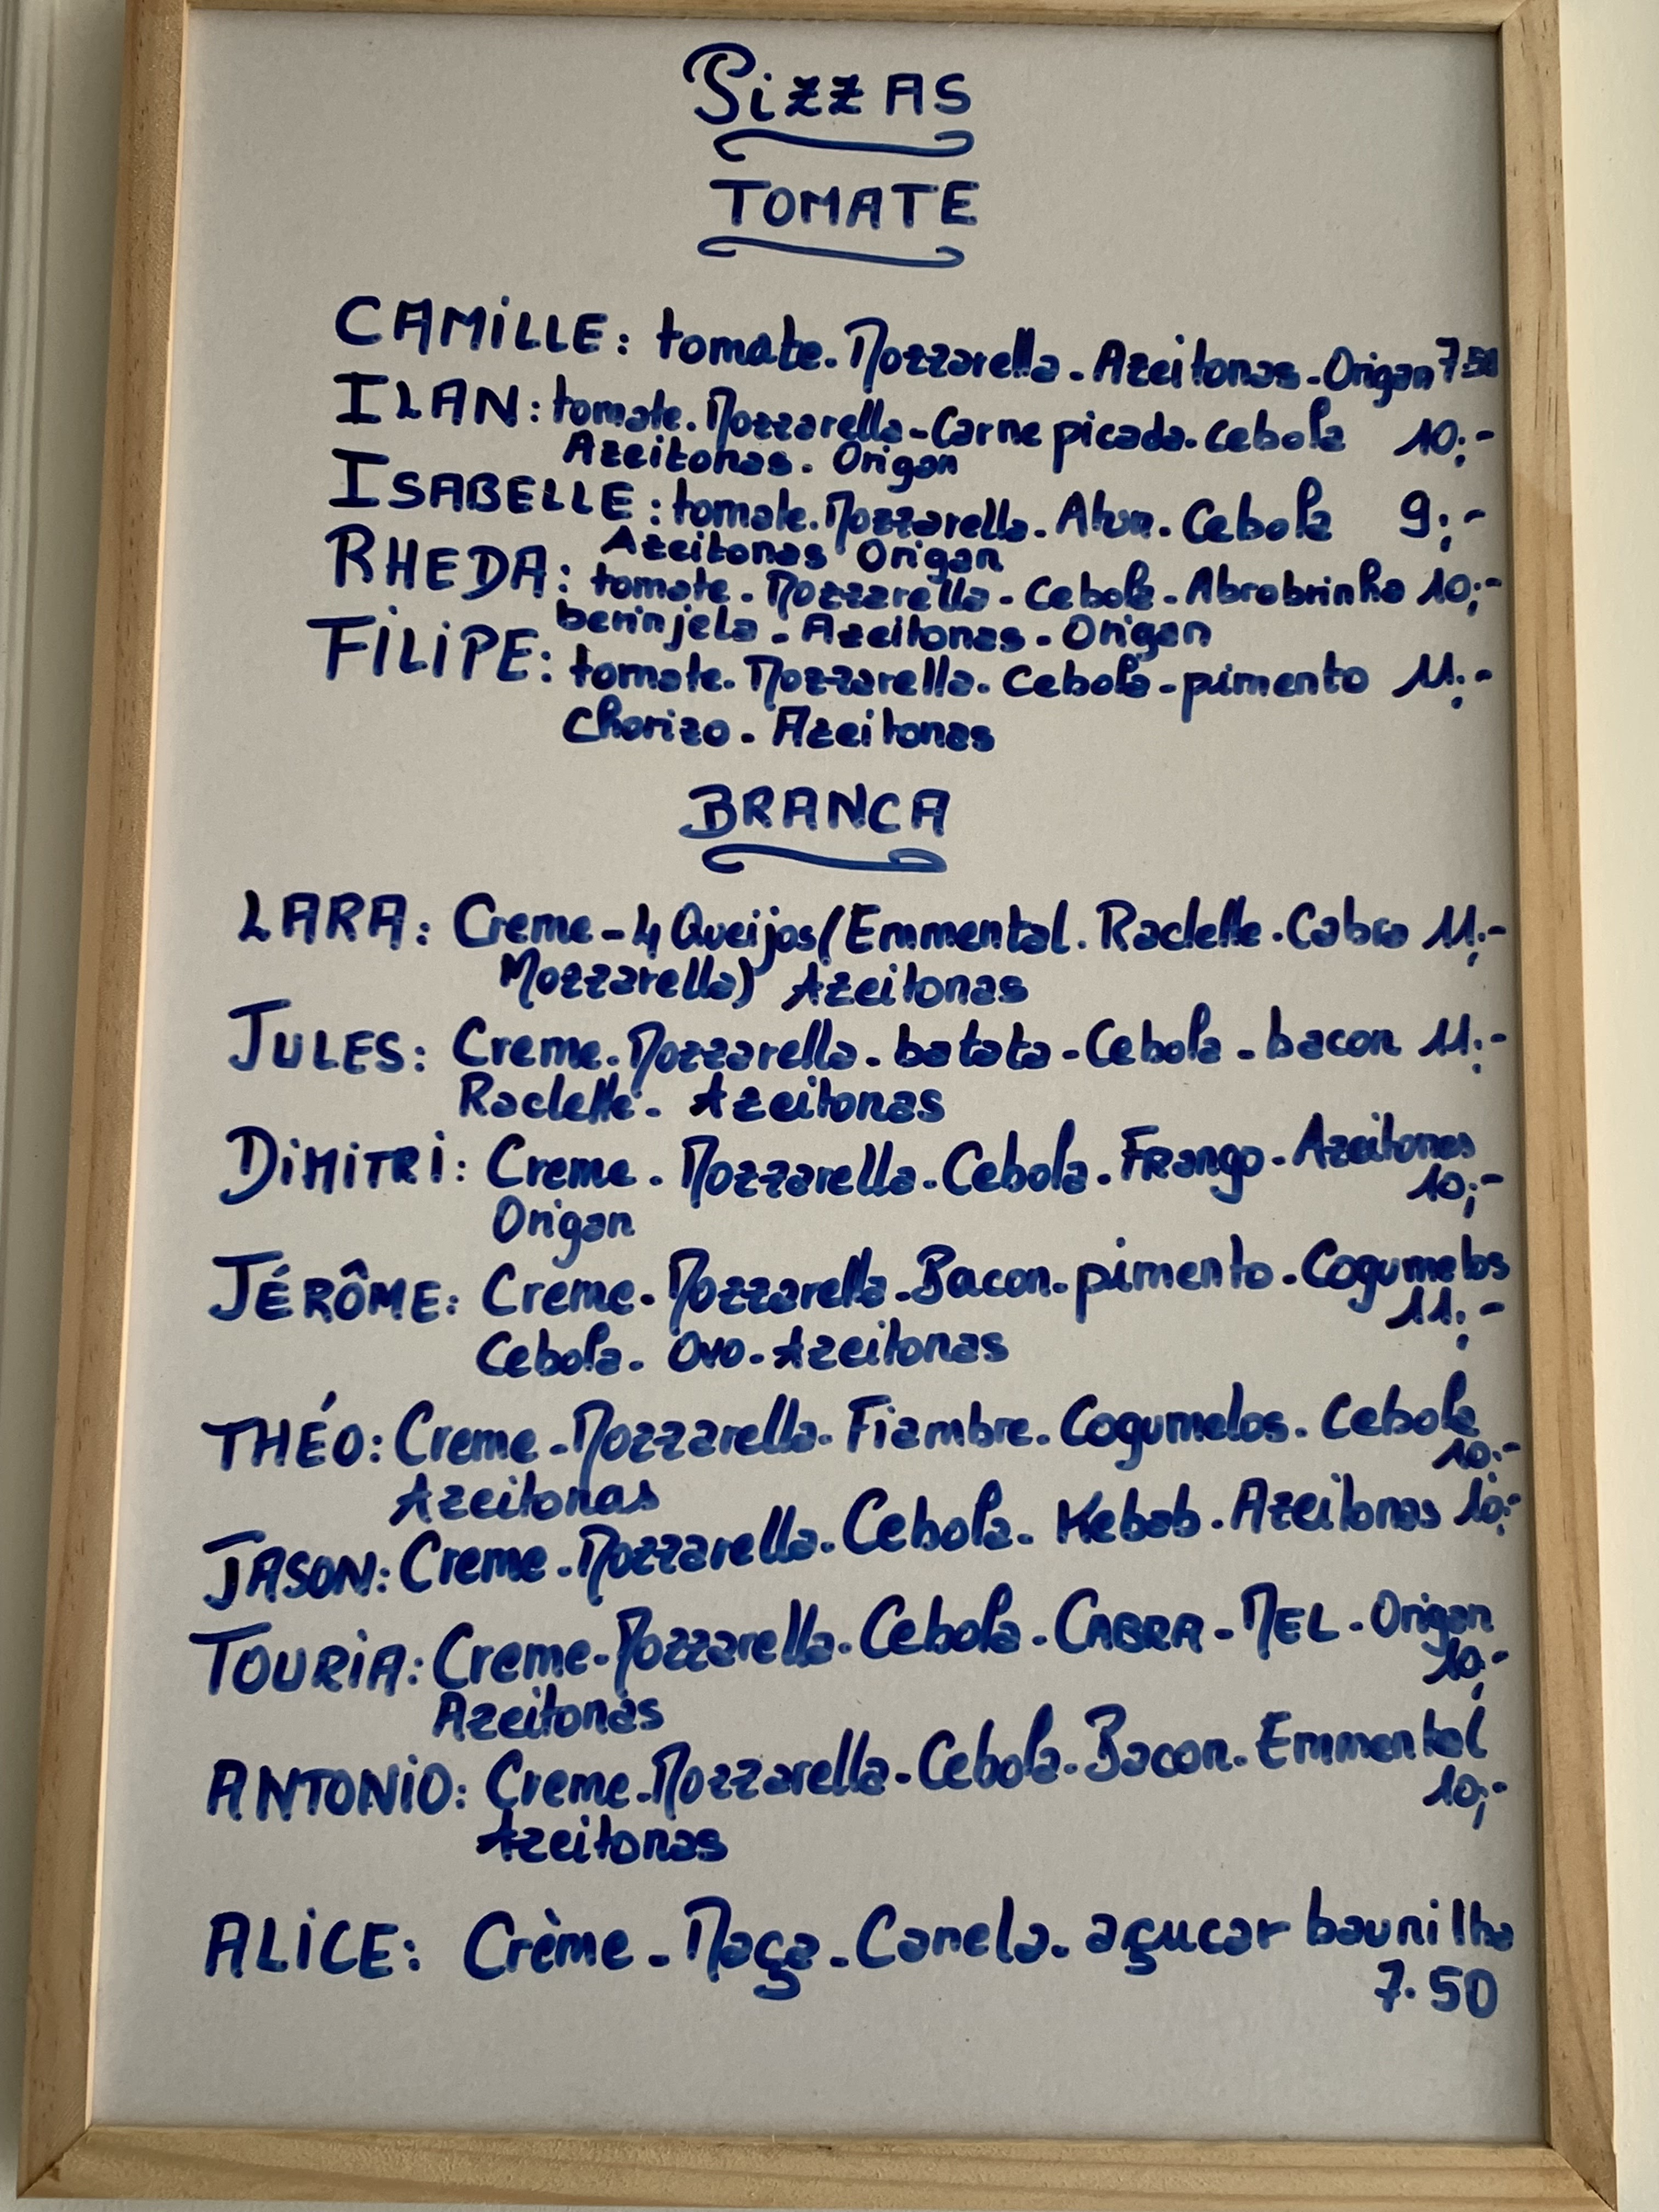 PizzAS
TOMATE
CAMiLLE: tomate. Mozzarella. Azeitonas. Origan 7.50
ILAN: tomate. Mozzarella - Carne picada. Cebola 10;-
Azeitonas. Origan
ISABELLE: tomate. Mozzarella. Atun. Cebola 9;-
Azeitonas Origan
RHEDA: tomate. Mozzarella - Cebola. Abrobrinha 10;-
berinjela. Azeitonas - Origan
FiLiPE: tomate. Mozzarella. Cebola - pimento 11;-
Chorizo. Azeitonas
BRANCA
LARA: Creme - 4 Queijos (Emmental. Raclette. Cabra 11;-
Mozzarella) Azeitonas
JULES: Creme. Mozzarella - batata - Cebola - bacon 11;-
Raclette. Azeitonas
DiMiTRi: Creme. Mozzarella. Cebola. Frango. Azeitonas
10;-
Origan
JÉRÔME: Creme. Mozzarella. Bacon. pimento. Cogumelos
11;-
Cebola. Ovo. Azeitonas
THÉO: Creme - Mozzarella. Fiambre. Cogumelos. Cebola
10;-
Azeitonas
JASON: Creme. Mozzarella. Cebola. Kebab. Azeitonas 10;-
TOURiA: Creme - Mozzarella. Cebola. CABRA - MEL. Origan
10;-
Azeitonas
ANTONiO: Creme. Mozzarella. Cebola. Bacon. Emmental
10;-
Azeitonas
ALiCE: Crème - Maça - Canela. açucar baunilha
7.50